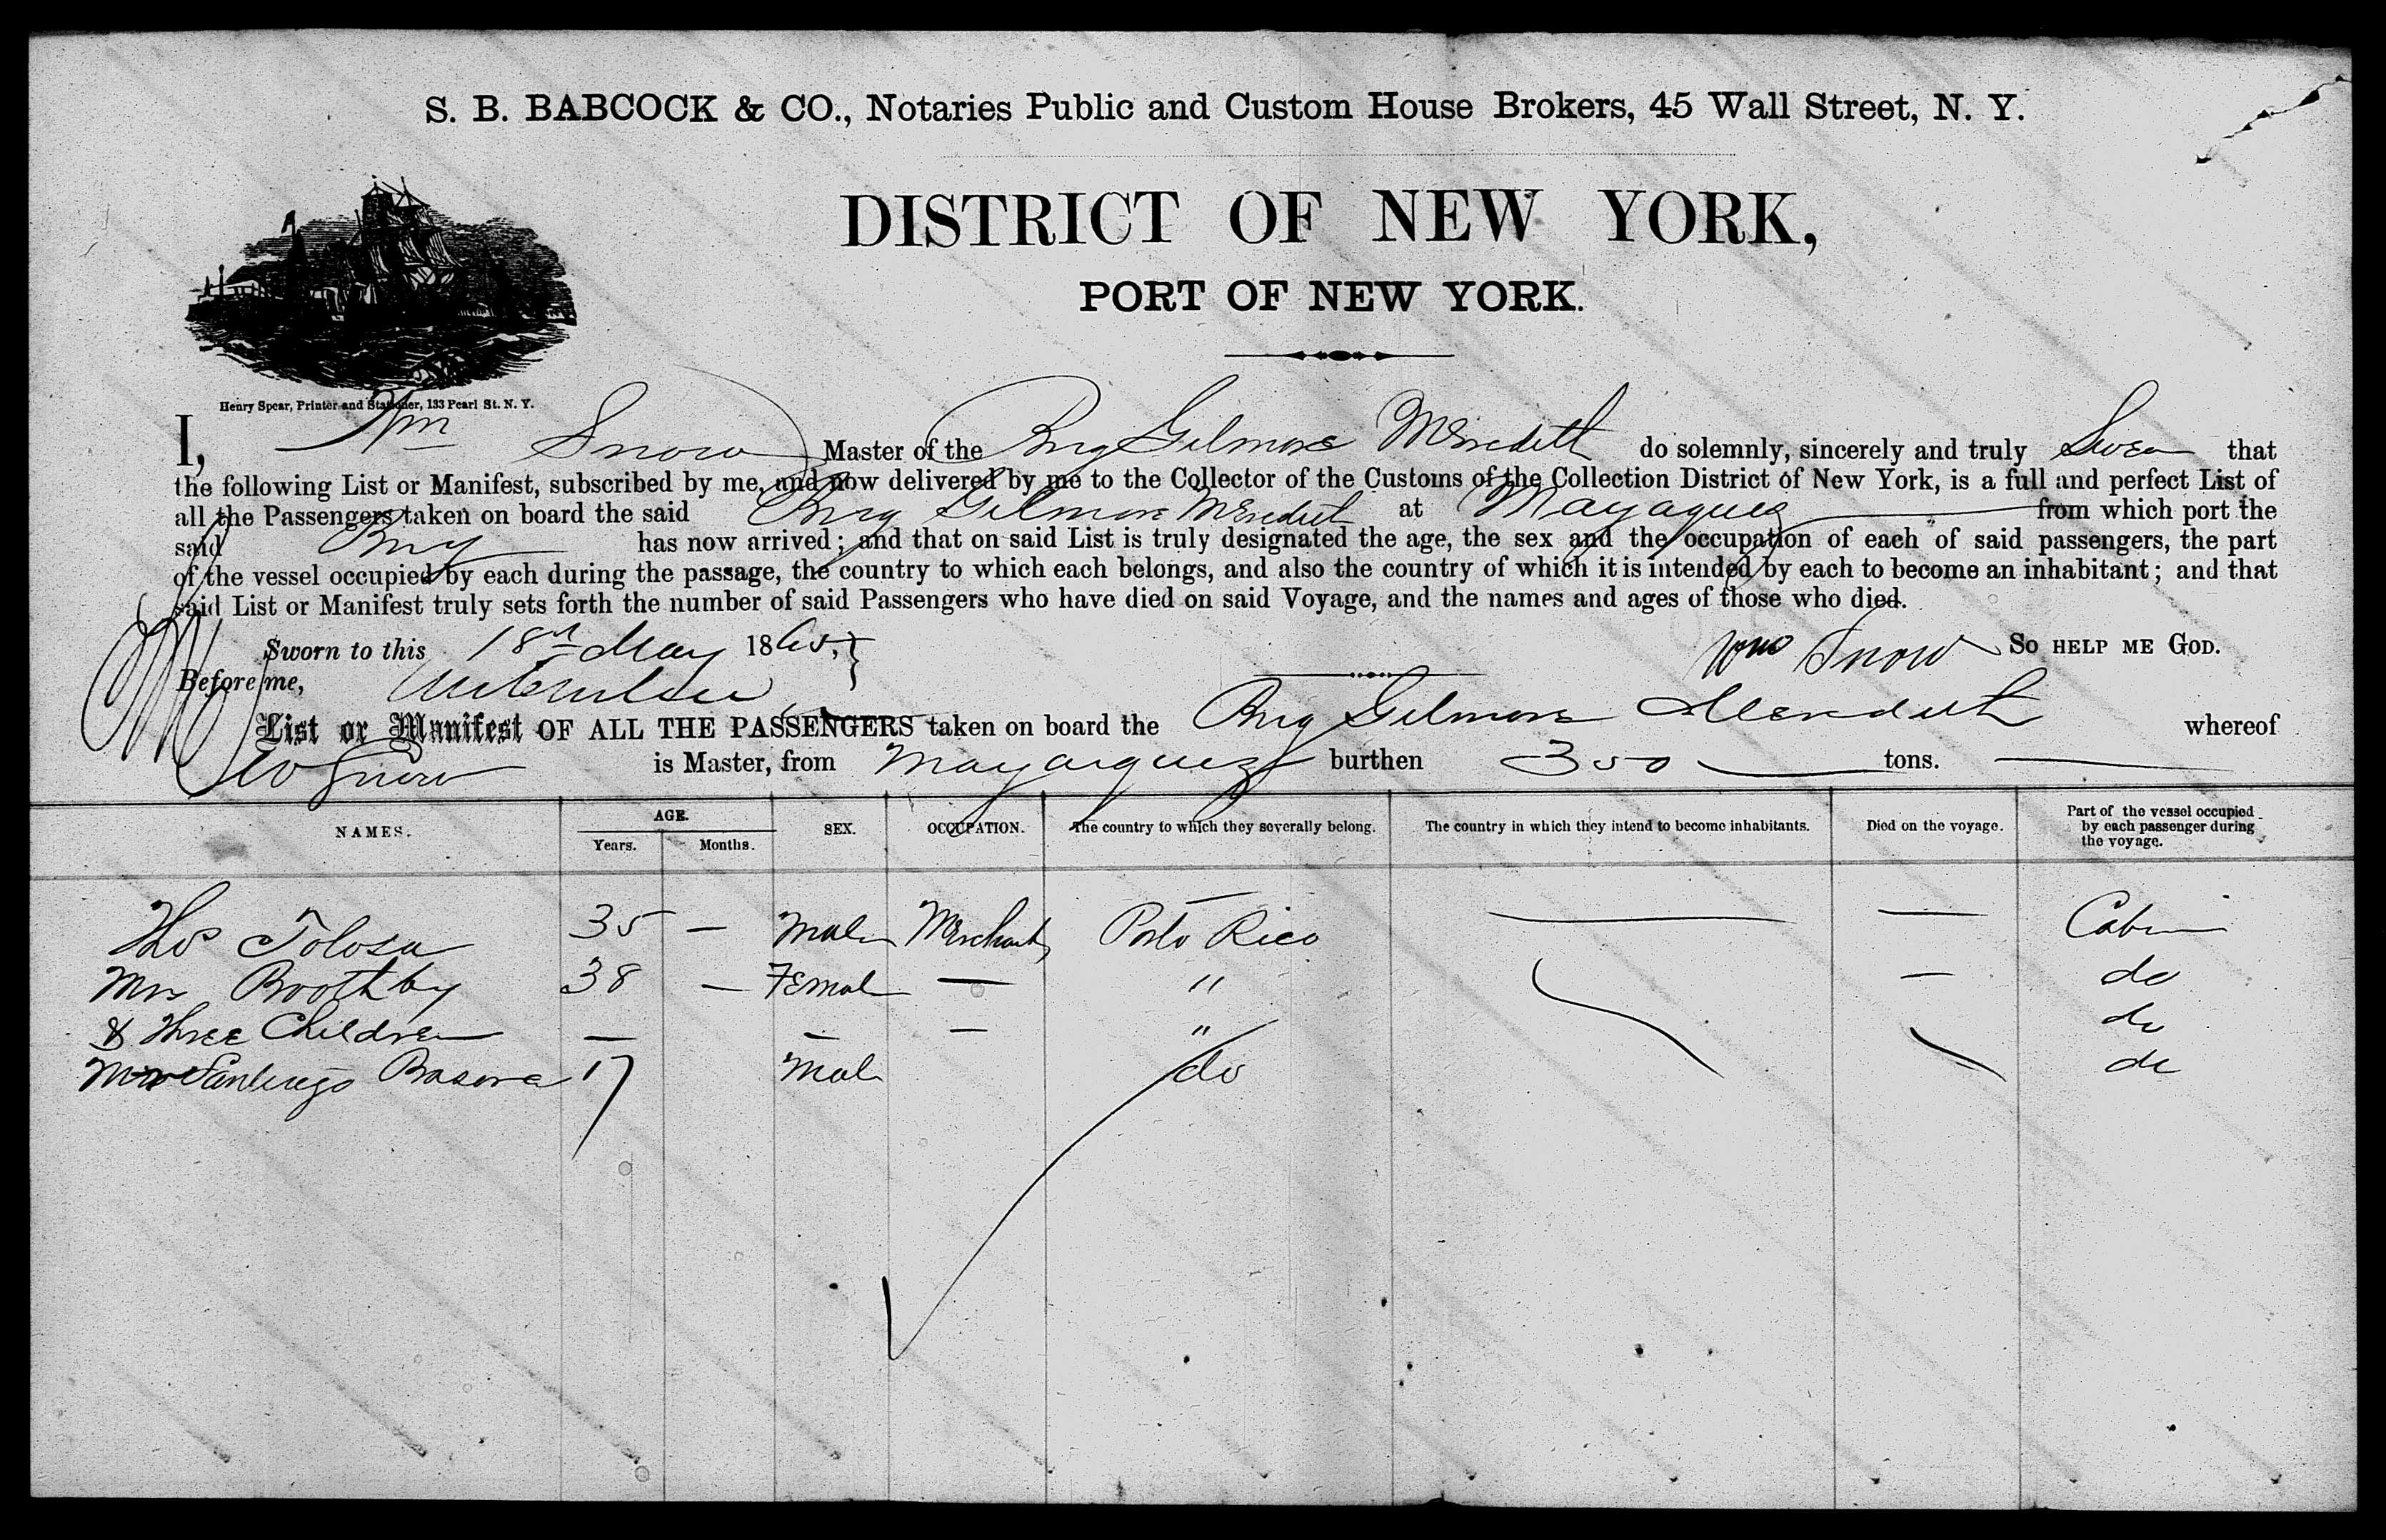 S. B. BABCOCK & CO., Notaries Public and Custom House Brokers, 45 Wall Street, N. Y.
DISTRICT OF NEW YORK,
PORT OF NEW YORK.
Henry Spear, Printer and Stationer, 133 Pearl St. N. Y.
I, Wm Snow Master of the Brig Gilmore Meredith do solemnly, sincerely and truly Swear that
the following List or Manifest, subscribed by me, and now delivered by me to the Collector of the Customs of the Collection District of New York, is a full and perfect List of
all the Passengers taken on board the said Brig Gilmore Meredith at Mayaguez from which port the
said Brig has now arrived; and that on said List is truly designated the age, the sex and the occupation of each of said passengers, the part
of the vessel occupied by each during the passage, the country to which each belongs, and also the country of which it is intended by each to become an inhabitant; and that
said List or Manifest truly sets forth the number of said Passengers who have died on said Voyage, and the names and ages of those who died.
Sworn to this 18th May 1865, Wm Snow SO HELP ME GOD.
Before me,
List or Manifest OF ALL THE PASSENGERS taken on board the Brig Gilmore Meredith whereof
W Snow is Master, from Mayarguez burthen 350 tons.
NAMES. AGE. Years. Months. SEX. OCCUPATION. The country to which they severally belong. The country in which they intend to become inhabitants. Died on the voyage. Part of the vessel occupied by each passenger during the voyage.
Thos Tolosa 35 — Male Merchant Porto Rico — — Cabin
Mrs Boothby 38 — Female — " — do
& Three Children — — — " do
Mr Santiago Basora 17 Male do do